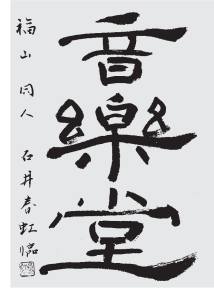 音樂堂
福山 同人 石井春虹臨